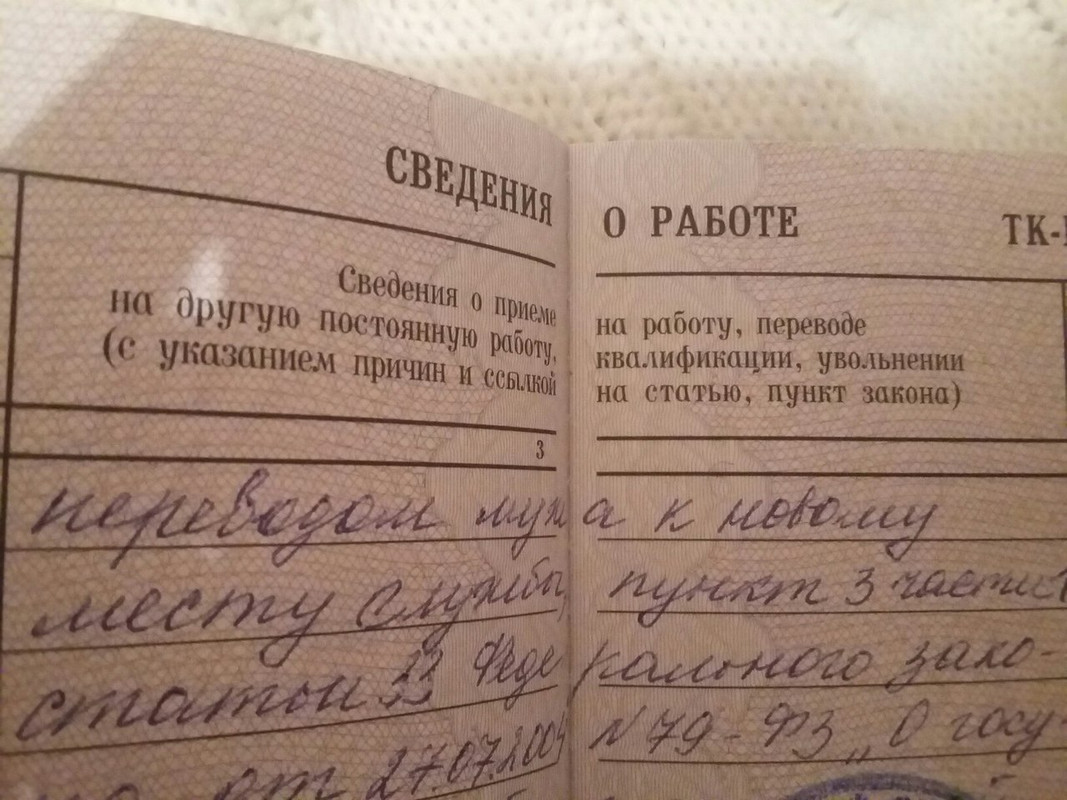 СВЕДЕНИЯ О РАБОТЕ ТК-
Сведения о приеме на работу, переводе
на другую постоянную работу, квалификации, увольнении
(с указанием причин и ссылкой на статью, пункт закона)
3
переводом мужа к новому
месту службы, пункт 3 части 1
статьи 33 Федерального зако-
на от 27.07.2004 N79-ФЗ „О госу-